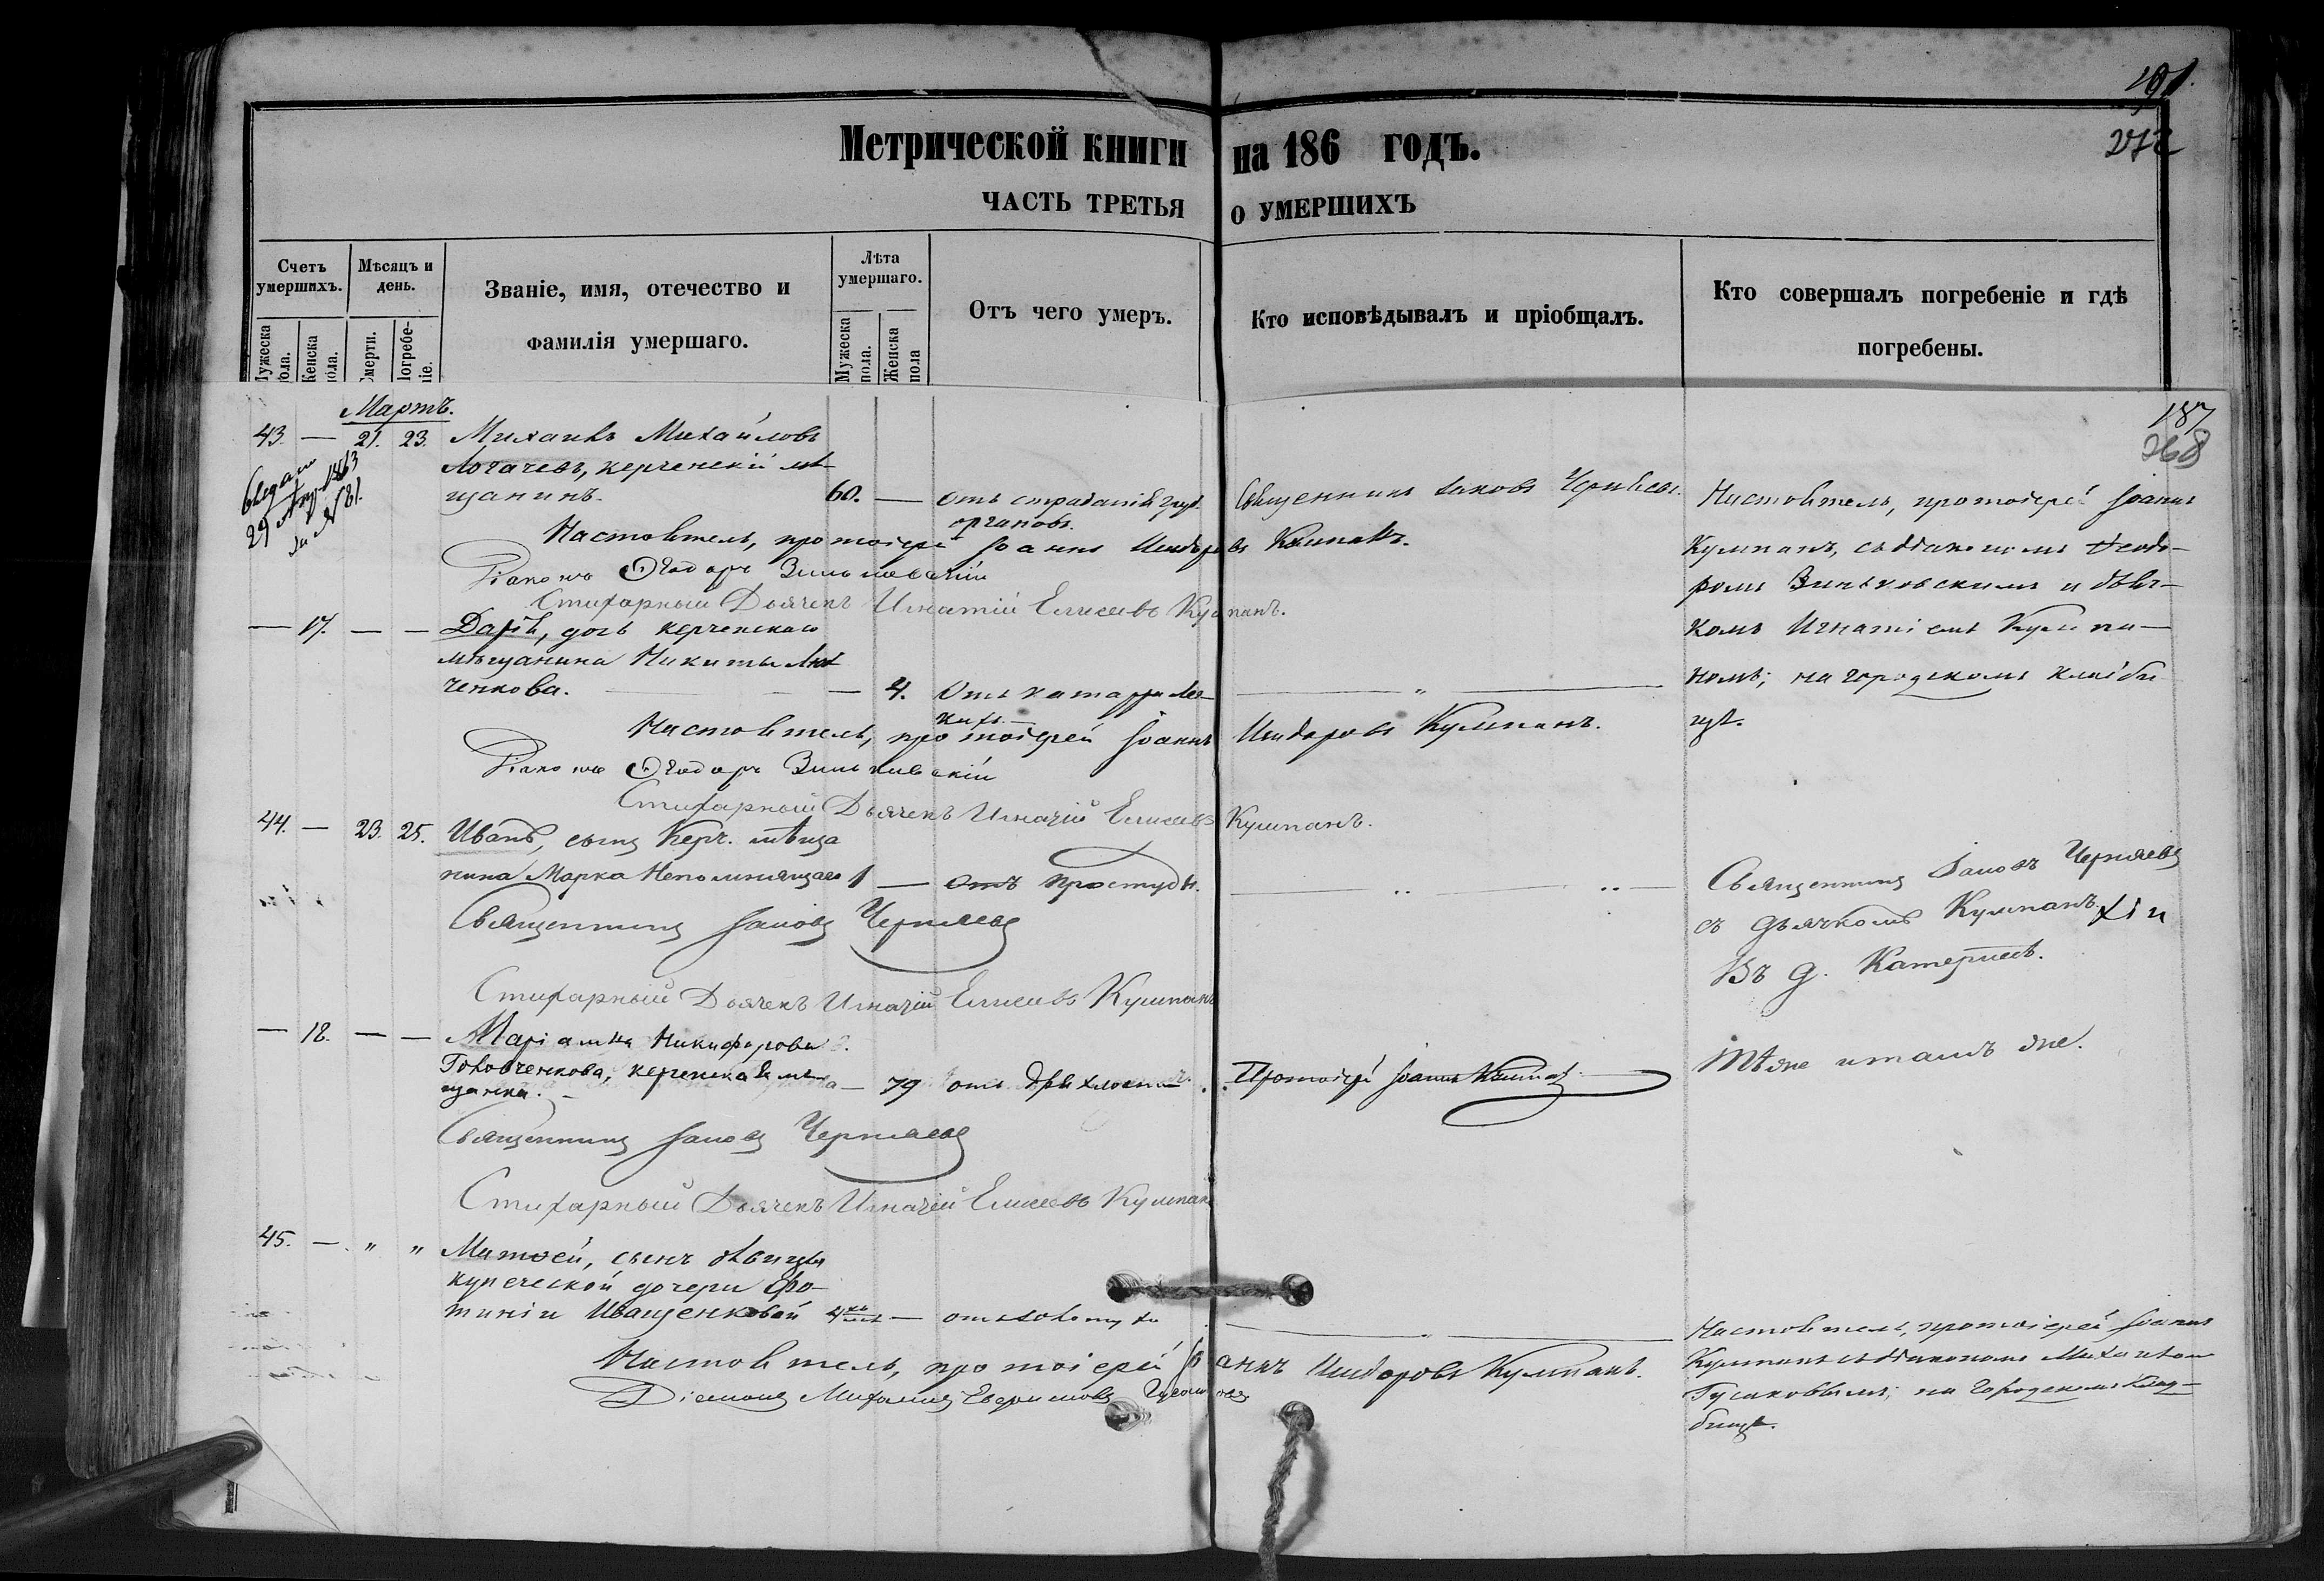 191.
272
Метрической книги на 186 годъ.
ЧАСТЬ ТРЕТЬЯ О УМЕРШИХЪ
Счетъ умершихъ.
Мѣсяцъ и день.
Званіе, имя, отечество и фамилія умершаго.
Лѣта умершаго.
Отъ чего умеръ.
Кто исповѣдывалъ и пріобщалъ.
Кто совершалъ погребеніе и гдѣ погребены.
Мужеска пола.
Женска пола.
Смерти.
Погребеніе.
Мужеска пола.
Женска пола
187
268
Мартъ.
43. — 21. 23. Михаилъ Михайловъ
Логачевъ, керченскій мѣ-
щанинъ. 60. — отъ страданія груд.
органовъ.
Священникъ Іаковъ Черняевъ.
29 1863
за № 81.
Настоятель, протоіерей Іоаннъ Исидоровъ Кумпанъ.
Діаконъ Ѳеодоръ Зиньковскій
Стихарный Дьячекъ Игнатій Елисеевъ Кумпанъ.
Настоятель, протоіерей Іоаннъ
Кумпанъ, съ діакономъ Ѳеодо-
ромъ Зиньковскимъ и дьяч-
комъ Игнатіемъ Кумпа-
номъ; на городскомъ кладби
щѣ.
— 17. — — Дарія, дочь керченскаго
мѣщанина Никиты
ченкова. — 4. Отъ катарра лег-
кихъ. — " —
Настоятель, протоіерей Іоаннъ Исидоровъ Кумпанъ.
Діаконъ Ѳеодоръ Зиньковскій
Стихарный Дьячекъ Игнатій Елисеевъ Кумпанъ.
44. — 23. 25. Иванъ, сынъ Керч. мѣща
нина Марка Непомнящаго 1 — отъ простуды. — " — " —
Священникъ Іаковъ Черняевъ
Стихарный Дьячекъ Игнатій Елисеевъ Кумпанъ
Священникъ Іаковъ Черняевъ
съ дьячкомъ Кумпанъ
Въ д. Катерлезъ.
— 18. — — Маріамна Никифорова
Головченкова, керченская мѣ-
щанка. — 79 отъ дряхлости. Протоіерей Іоаннъ Кумпанъ
Тѣже и тамъ же.
Священникъ Іаковъ Черняевъ
Стихарный Дьячекъ Игнатій Елисеевъ Кумпанъ
45. — " " Матѳей, сынъ дѣвицы
купеческой дочери Фо-
тиніи Иващенковой 4 — отъ — " —
Настоятель, протоіерей Іоаннъ Исидоровъ Кумпанъ.
Діаконъ Михаилъ Гусаковъ
Настоятель, протоіерей Іоаннъ
Кумпанъ съ діакономъ Михаиломъ
Гусаковымъ; на городскомъ клад-
бищѣ.